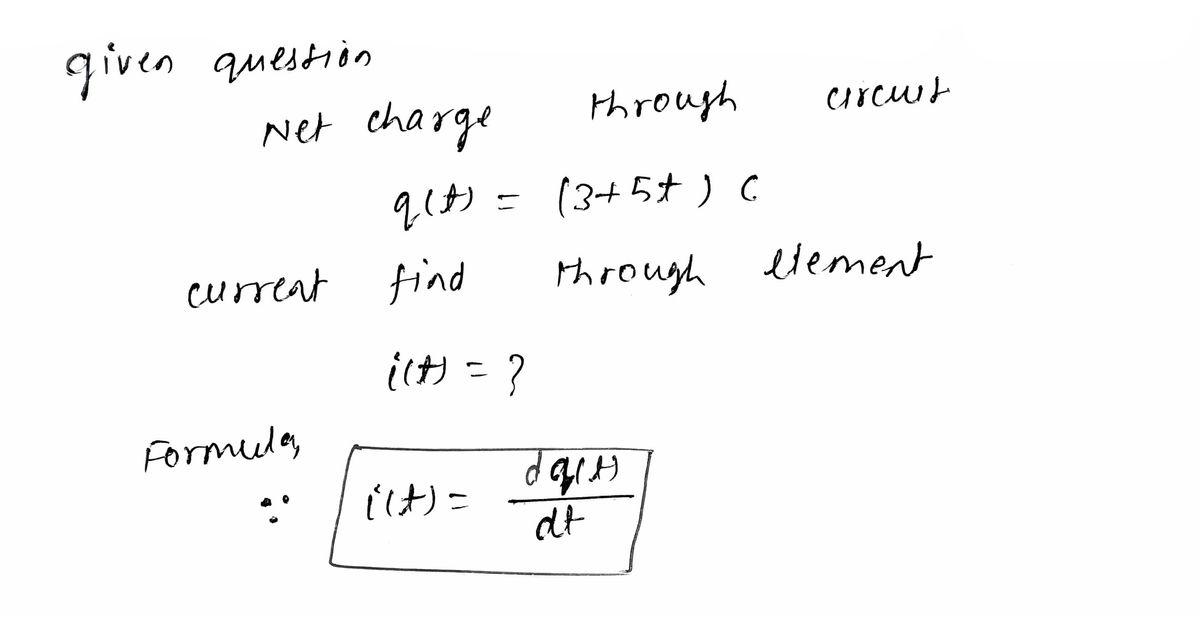 given question
Net charge through circuit
q(t) = (3+5t) C
current find through element
i(t) = ?
Formula,
∵ i(t) = dq(t)/dt